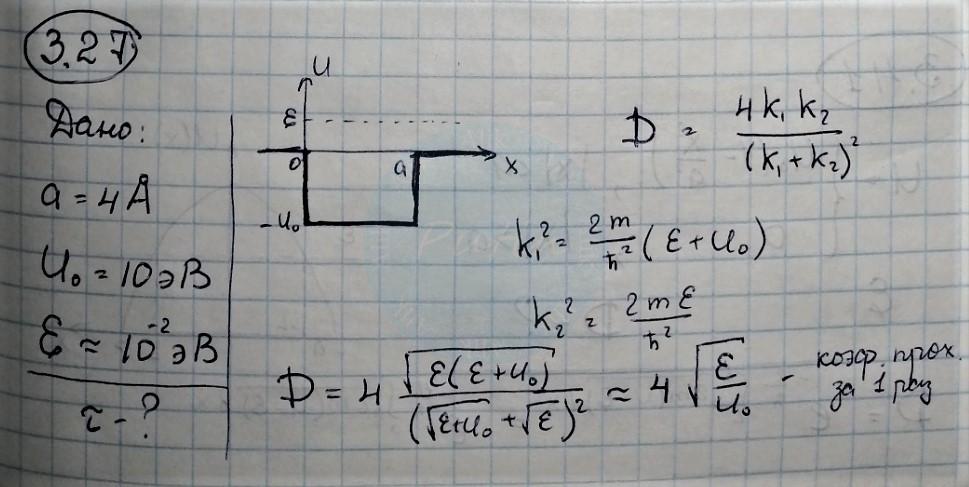 3.27
Дано:
a = 4 Å
U₀ = 10 эВ
ε ≈ 10⁻² эВ
τ - ?
U
ε
0
a
x
-U₀
D = 4k₁k₂ / (k₁ + k₂)²
k₁² = 2m/ħ² (ε + U₀)
k₂² = 2mε/ħ²
D = 4 √(ε(ε + U₀)) / (√(ε+U₀) + √ε)² ≈ 4 √(ε/U₀) - коэф. прох.
за 1 раз